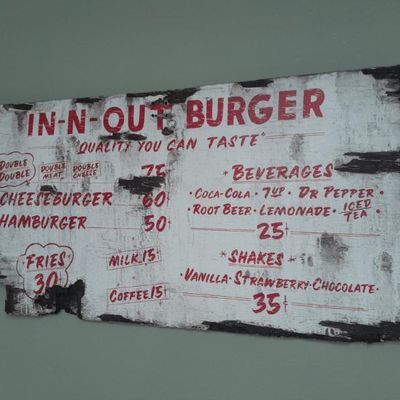 IN-N-OUT BURGER
"QUALITY YOU CAN TASTE"
DOUBLE DOUBLE DOUBLE MEAT DOUBLE CHEESE 75
CHEESEBURGER 60¢
HAMBURGER 50¢
FRIES 30
MILK 15¢
COFFEE 15¢
*BEVERAGES*
·COCA-COLA·7UP·DR PEPPER·
·ROOT BEER·LEMONADE·ICED TEA·
25¢
*SHAKES*
·VANILLA·STRAWBERRY·CHOCOLATE·
35¢